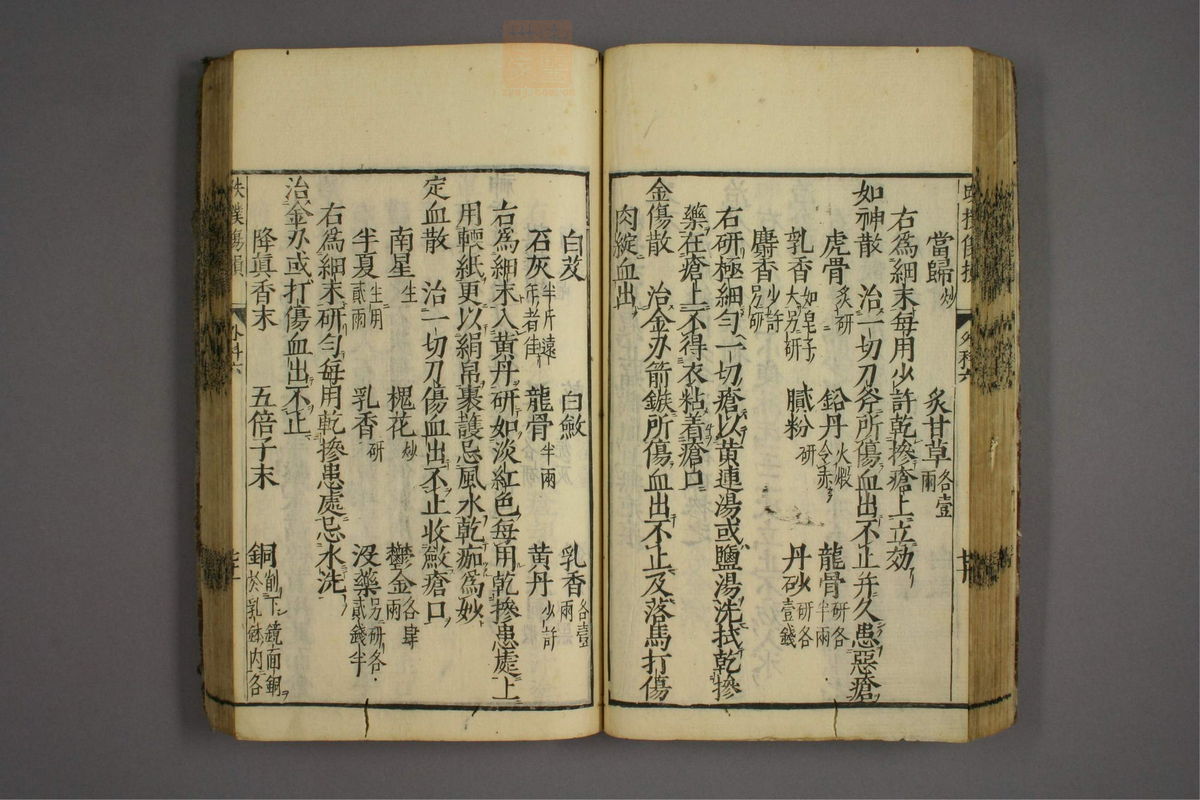 當歸炒 炙甘草各壹兩
右為細末每用少許乾摻瘡上立効
如神散 治一切刀斧所傷血出不止并久患惡瘡
虎骨炙研 鉛丹火煅令赤 龍骨研各半兩
乳香如皂子大另研 膩粉研 丹砂研各壹錢
麝香少許另研
右研極細勻一切瘡以黄連湯或鹽湯洗拭乾摻
藥在瘡上不得衣粘着瘡口
金傷散 治金刃箭鏃所傷血出不止及落馬打傷
肉綻血出
白芨 白斂 乳香各壹兩
石灰半斤遠年者佳 龍骨半兩 黄丹少許
右為細末入黄丹研如淡紅色每用乾摻患處上
用輭紙更以絹帛裹護忌風水乾痂為妙
定血散 治一切刀傷血出不止收斂瘡口
南星生 槐花炒 鬱金各肆兩
半夏生用貳兩 乳香研 没藥另研各貳錢半
右為細末研勻每用乾摻患處忌水洗
治金刃或打傷血出不止
降眞香末 五倍子末 銅削下鏡面銅於乳鉢内各
外科六